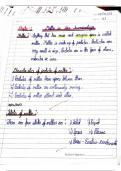 Matter in our surroundings
Matter: Anything that has mass and occupies space is called
matter. Matter is made up of particles. Particles are
very small in size. Particles are in the form of atom,
molecules or ions.
Characteristics of particles of matter:-
Particles of matter have space between them.
Particles of matter are continuously moving.
Particles of matter attract each other.
States of matter:-
There are five states of matter:-
Solid
Liquid
Gases
Plasma
Bose-Einstein Condensate